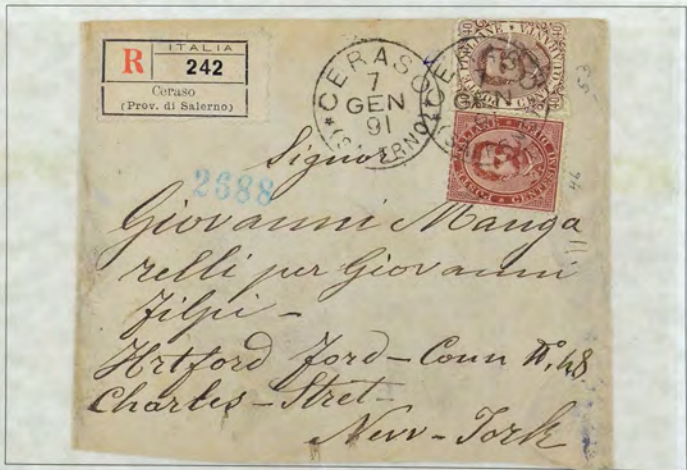 R
ITALIA
242
Ceraso
(Prov. di Salerno)
CERASO
7
GEN
91
(SALERNO)
CERASO
7
GEN
91
2688
Signor
Giovanni Manga
relli per Giovanni
Filpi -
Hrtford Ford - Conn N. 48
Charles - Stret -
New - Jork